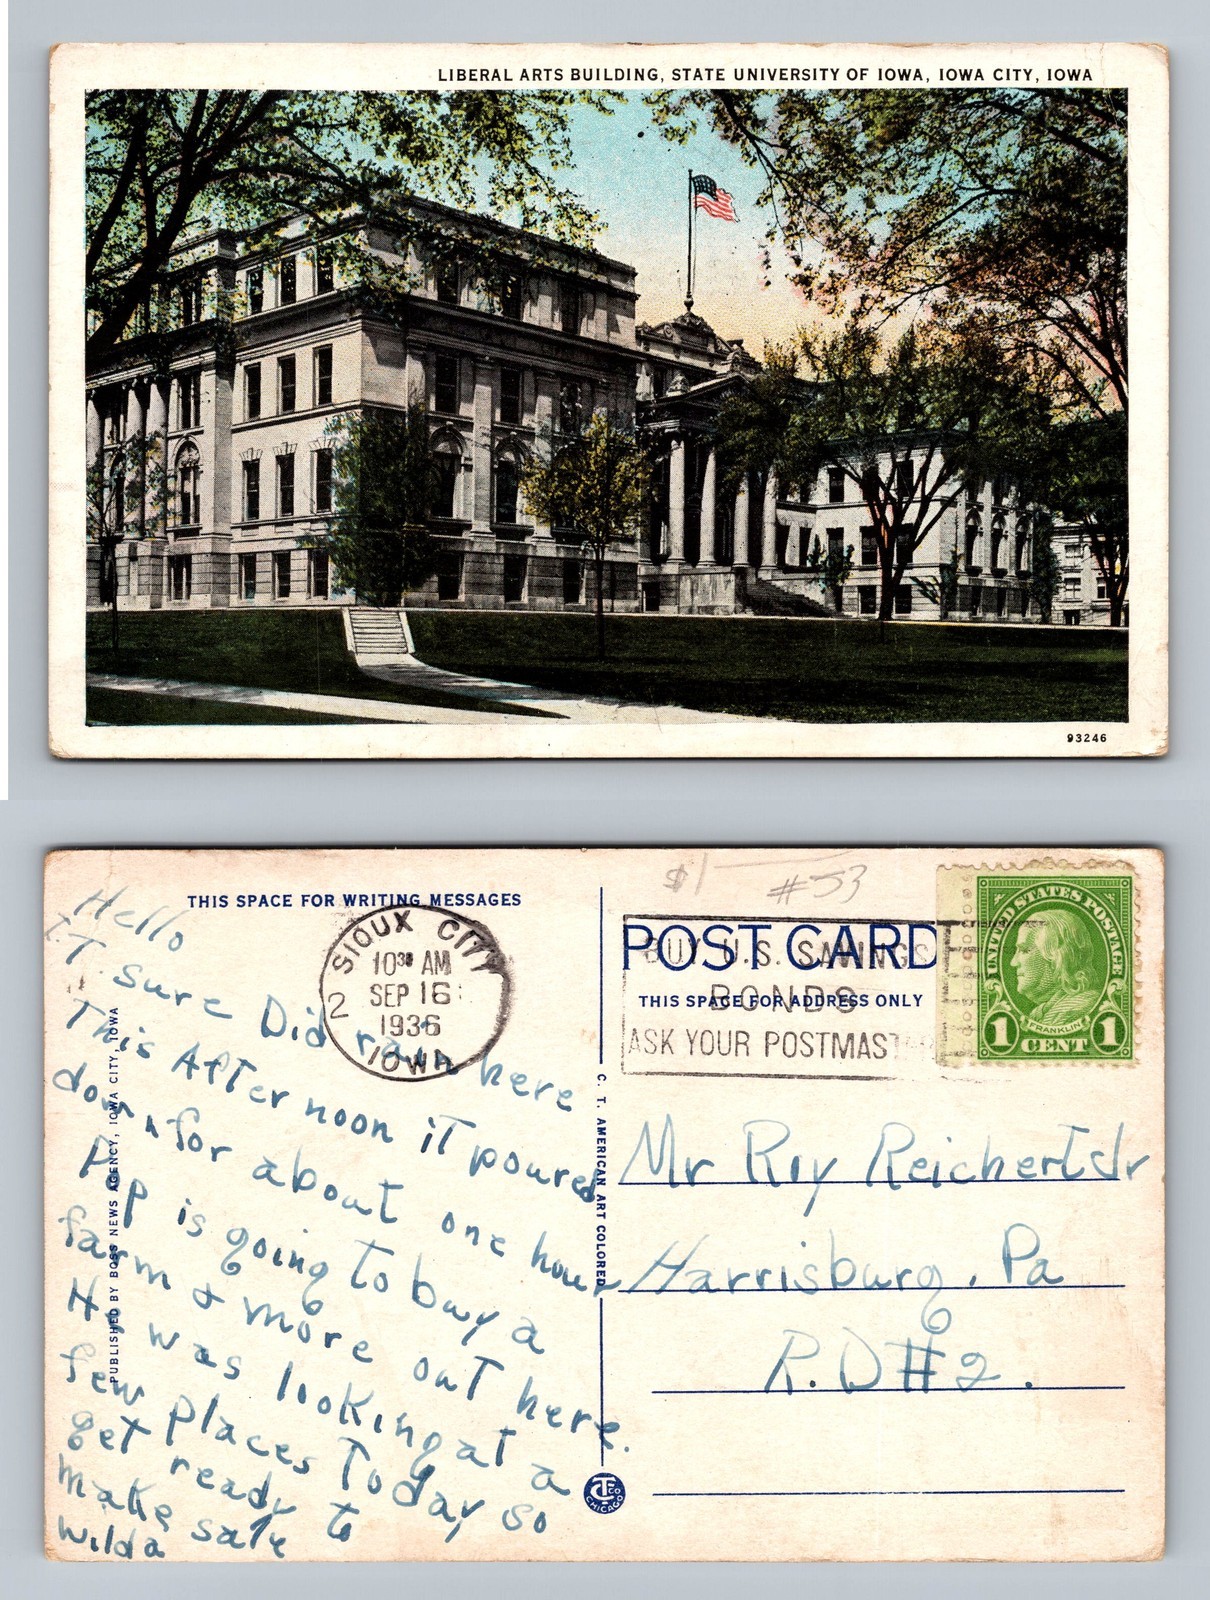 LIBERAL ARTS BUILDING, STATE UNIVERSITY OF IOWA, IOWA CITY, IOWA
93246
THIS SPACE FOR WRITING MESSAGES
Hello
IT sure Did rain here
This AfTer noon iT poured
down for about one hour
Pop is going to buy a
farm & move out here.
He was looking at a
few places Today so
get ready to
make sale
Wilda
PUBLISHED BY BOSS NEWS AGENCY, IOWA CITY, IOWA
SIOUX CITY
10 30 AM
SEP 16
1936
2
IOWA
C. T. AMERICAN ART COLORED
CT CO
CHICAGO
$1
#53
POST CARD
THIS SPACE FOR ADDRESS ONLY
BUY U.S. SAVINGS
BONDS
ASK YOUR POSTMASTER
UNITED STATES POSTAGE
FRANKLIN
1 CENT 1
Mr Roy Reichert Jr
Harrisburg, Pa
R.D #2.